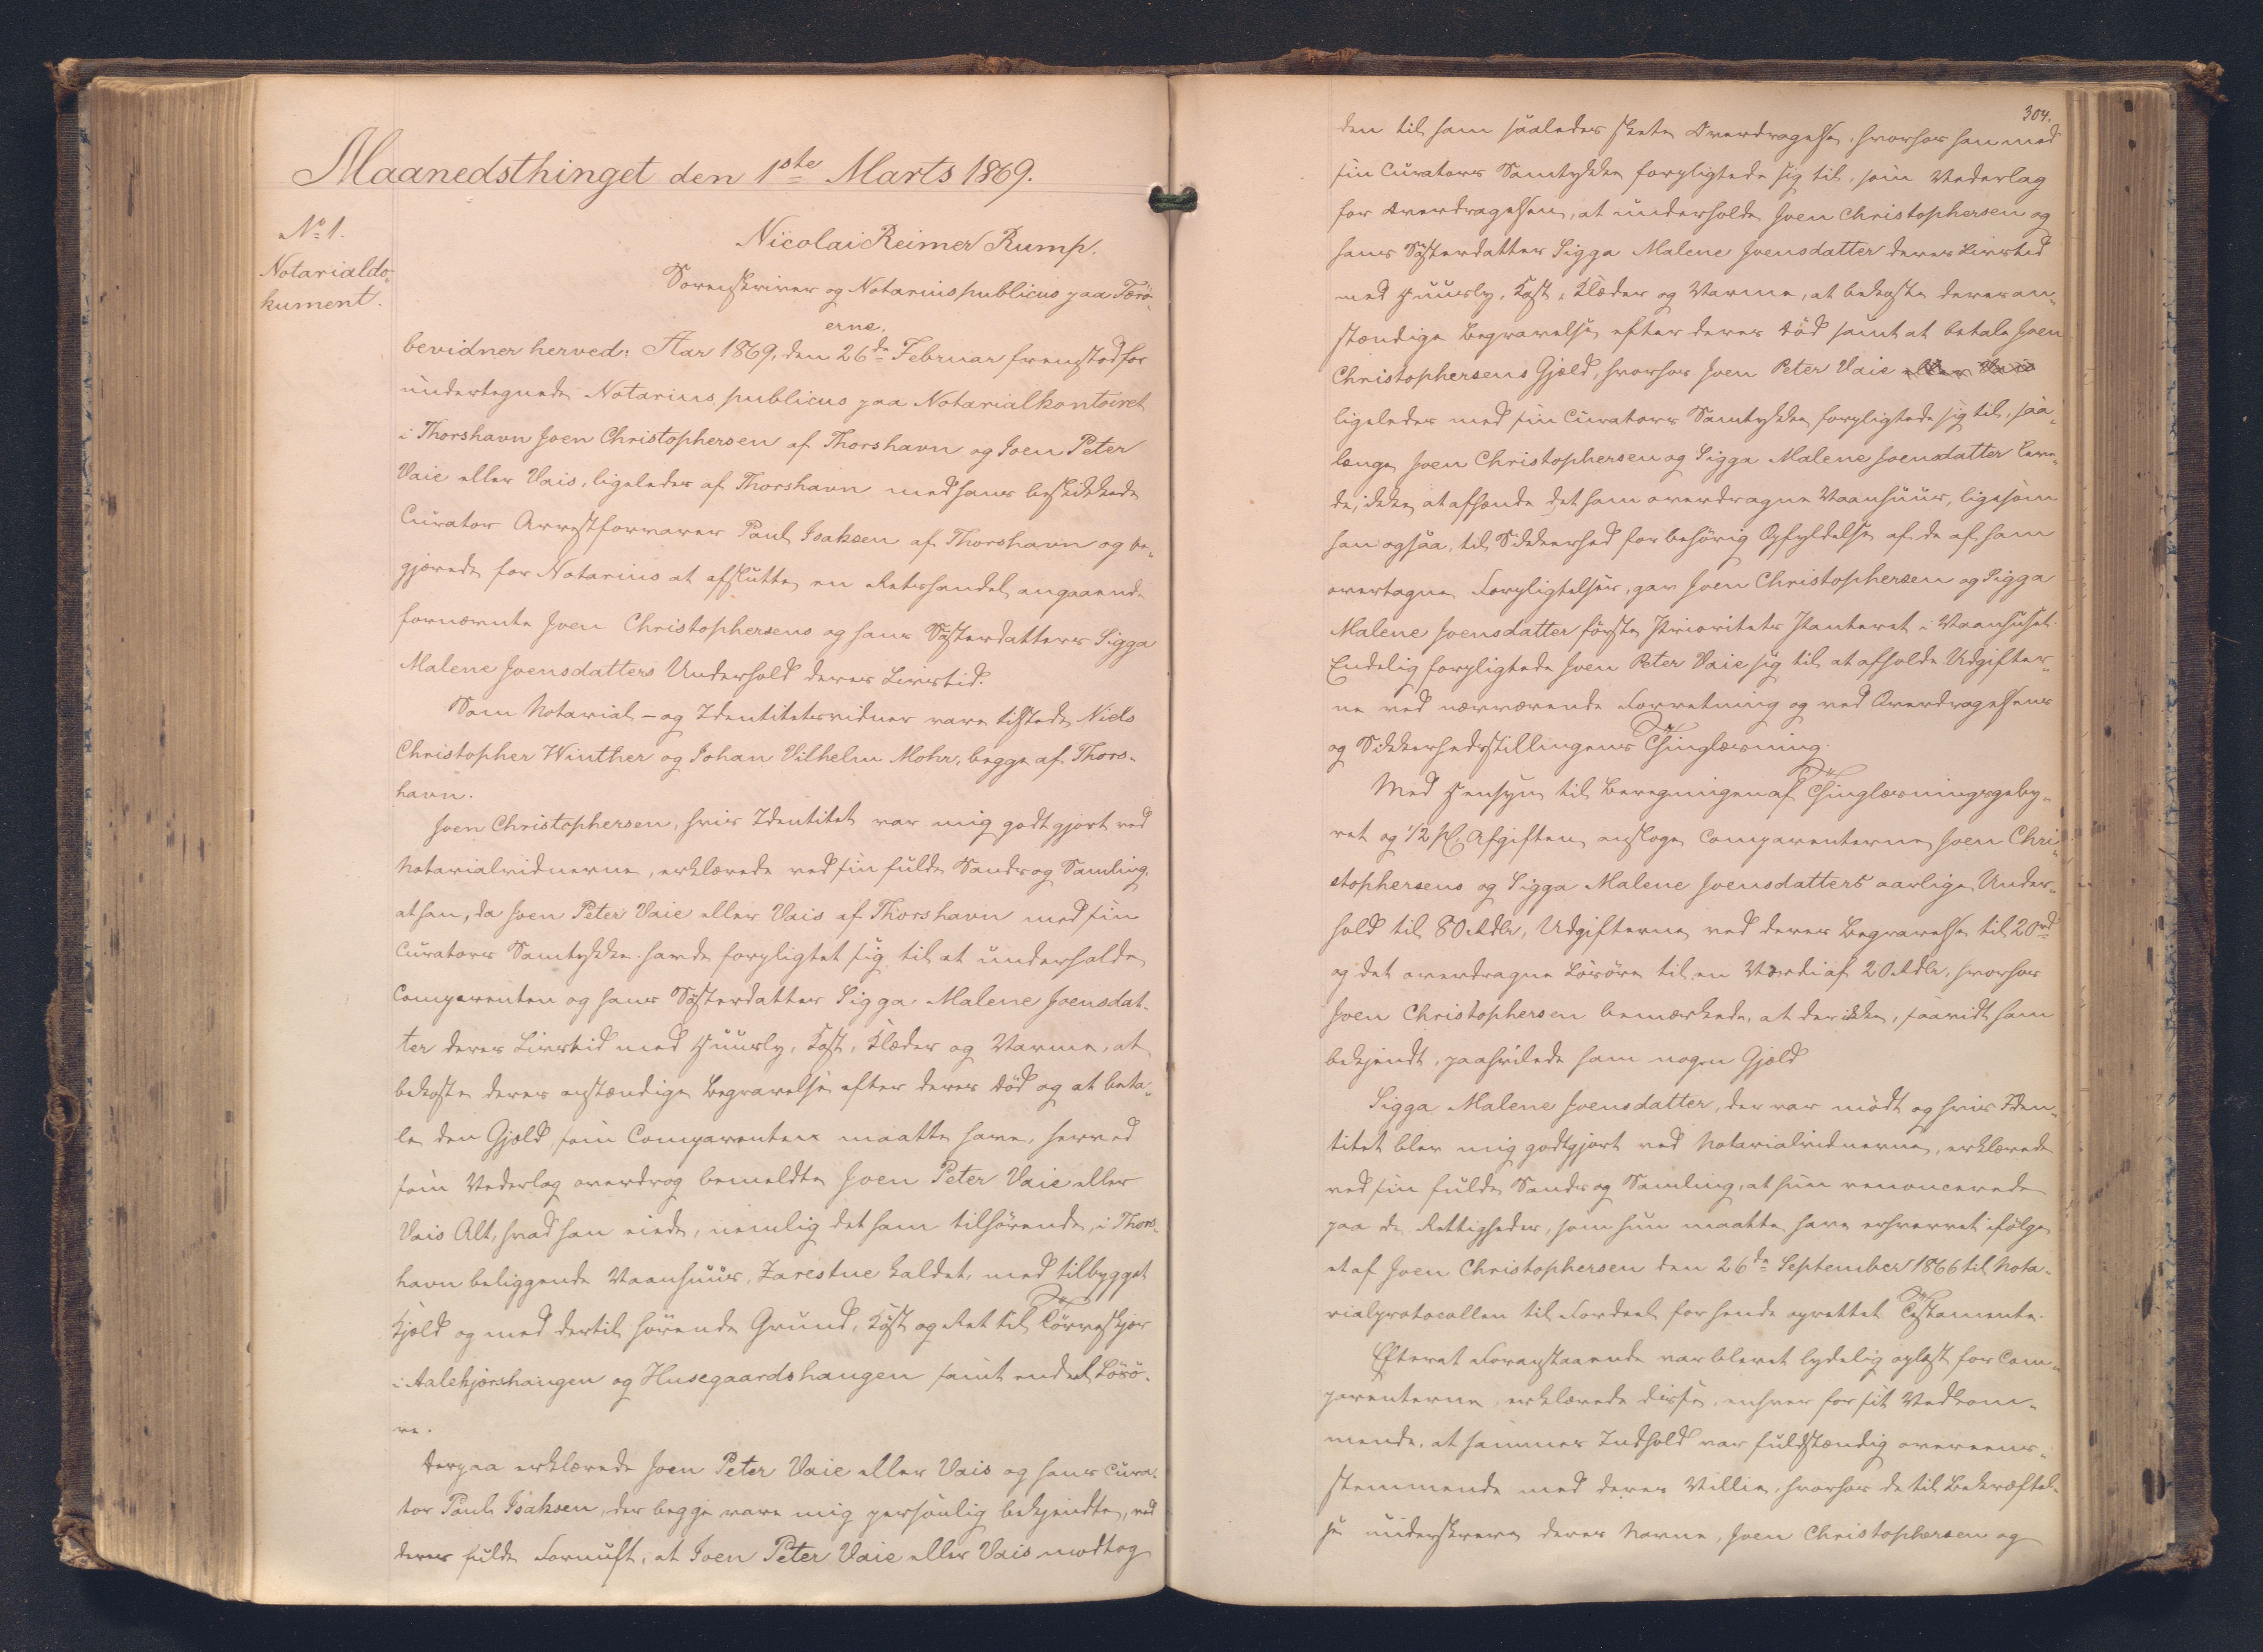 Maanedsthinget den 1ste Marts 1869.
No 1.
Notarialdo-
kument.
Nicolai Reimer Rump.
Sorenskriver og Notarius publicus paa Færö-
erne,
bevidner herved: Aar 1869, den 26de Februar fremstod for
undertegnede Notarius publicus paa Notarialkontoiret
i Thorshavn Joen Christophersen af Thorshavn og Joen Peter
Vaie eller Vais, ligeledes af Thorshavn med hans beskikkede
Curator Arrestforvarer Paul Isaksen af Thorshavn og be-
gjærede for Notarius at afslutte en Retshandel angaaende
fornævnte Joen Christophersens og hans Sösterdatters Sigga
Malene Joensdatters Underhold deres Livstid.
Som Notarial- og Identitetsvidner vare tilstede Niels
Christopher Winther og Johan Vilhelm Mohr, begge af Thors-
havn.
Joen Christophersen, hvis Identitet var mig godtgjort ved
Notarialvidnerne, erklærede ved sin fulde Sands og Samling,
at han, da Joen Peter Vaie eller Vais af Thorshavn med sin
Curators Samtykke havde forpligtet sig til at underholde
Comparenten og hans Sösterdatter Sigga Malene Joensdat-
ter deres Livstid med Huusly, Kost, Klæder og Varme, at
bekoste deres anstændige Begravelse efter deres Död og at beta-
le den Gjæld, som Comparenten maatte have, herved
som Vederlag overdrog bemeldte Joen Peter Vaie eller
Vais Alt, hvad han eiede, nemlig det ham tilhörende, i Thors-
havn beliggende Vaanhuus, Zarestue kaldet, med tilbygget
Kjæld og med dertil hörende Grund, Köst og Ret til Törveskjær
i Aalekjærshaugen og Husegaardshaugen samt endeel Lösö-
re.
Derpaa erklærede Joen Peter Vaie eller Vais og hans Cura-
tor Paul Isaksen, der begge vare mig personlig bekjendte, ved
deres fulde Fornuft, at Joen Peter Vaie eller Vais modtog
304.
den til ham saaledes skete Overdragelse, hvorhos han med
sin Curators Samtykke forpligtede sig til, som Vederlag
for Overdragelsen, at underholde Joen Christophersen og
hans Sösterdatter Sigga Malene Joensdatter deres Livstid
med Huusly, Kost, Klæder og Varme, at bekoste deres an-
stændige Begravelse efter deres Död samt at betale Joen
Christophersens Gjæld, hvorhos Joen Peter Vaie eller Vais
ligeledes med sin Curators Samtykke forpligtede sig til, saa-
længe Joen Christophersen og Sigga Malene Joensdatter leve-
de, ikke at afhænde det ham overdragne Vaanhuus, ligesom
han ogsaa, til Sikkerhed for behörig Opfyldelse af de af ham
overtagne Forpligtelser, gav Joen Christophersen og Sigga
Malene Joensdatter förste Prioritets Panteret i Vaanhuset.
Endelig forpligtede Joen Peter Vaie sig til at afholde Udgifter-
ne ved nærværende Forretning og ved Overdragelsens
og Sikkerhedsstillingens Thinglæsning.
Med Hensyn til Beregningen af Thinglæsningsgeby-
ret og 1/2 pCt. Afgiften ansloge Comparenterne Joen Chri-
stophersens og Sigga Malene Joensdatters aarlige Under-
hold til 80 Rdlr, Udgifterne ved deres Begravelse til 20rd
og det overdragne Lösöre til en Værdi af 20 Rdlr, hvorhos
Joen Christophersen bemærkede, at der ikke, saavidt ham
bekjendt, paahvilede ham nogen Gjæld
Sigga Malene Joensdatter, der var mödt og hvis Iden-
titet blev mig godtgjort ved Notarialvidnerne, erklærede
ved sin fulde Sands og Samling, at hun renoncerede
paa de Rettigheder, som hun maatte have erhvervet ifölge
et af Joen Christophersen den 26de September 1866 til Nota-
rialprotocollen til Fordeel for hende oprettet Testamente.
Efterat Foranstaaende var blevet lydelig oplæst for Com-
parenterne, erklærede disse, enhver for sit Vedkom-
mende, at sammes Indhold var fuldstændig overeens-
stemmende med deres Villie, hvorhos de til Bekræftel-
se underskreve deres Navne, Joen Christophersen og